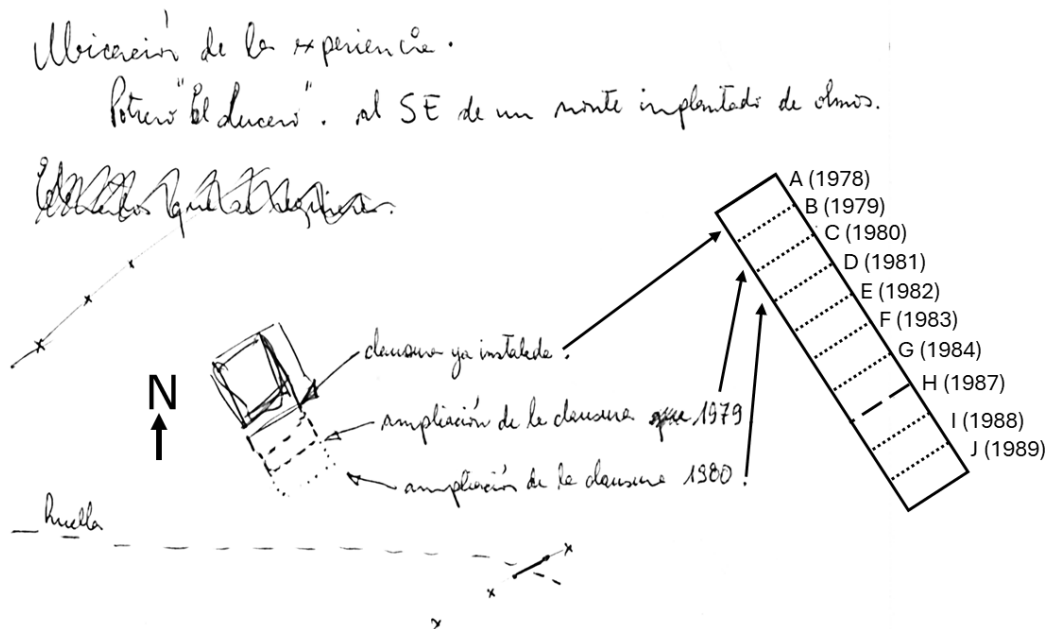 Ubicación de la experiencia.
Potrero "El Lucero". al SE de un monte implantado de olmos.
A (1978)
B (1979)
C (1980)
D (1981)
E (1982)
F (1983)
G (1984)
H (1987)
I (1988)
J (1989)
N
clausura ya instalada.
ampliación de la clausura 1979
ampliación de la clausura 1980.
huella